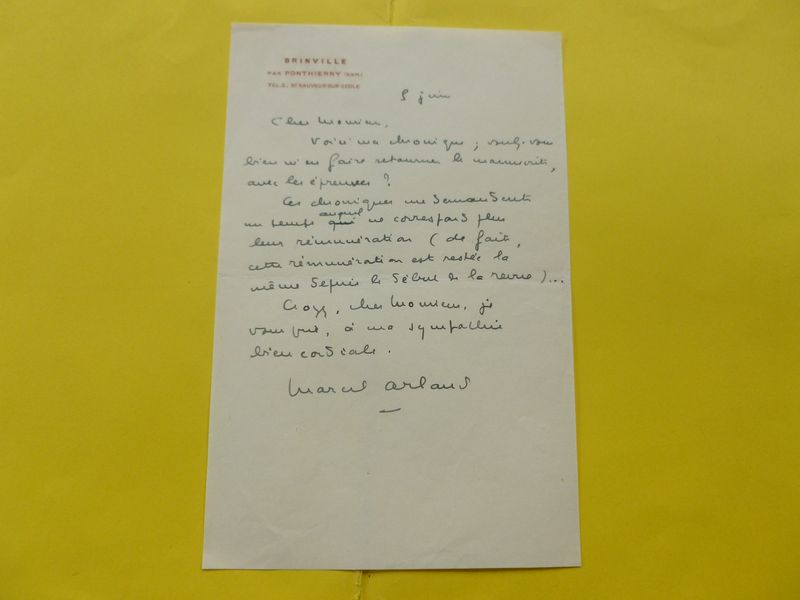 BRINVILLE
PAR PONTHIERRY (S&M)
TÉL. 2. ST SAUVEUR-SUR-ÉCOLE
5 juin
Cher Monsieur,
Voici ma chronique ; voulez-vous
bien m'en faire retourner le manuscrit,
avec les épreuves ?
Ces chroniques me demandent
un temps qui auquel ne correspond plus
leur rémunération (de fait,
cette rémunération est restée la
même depuis le début de la revue)...
Croyez, cher Monsieur, je
vous prie, à ma sympathie
bien cordiale.
Marcel Arland